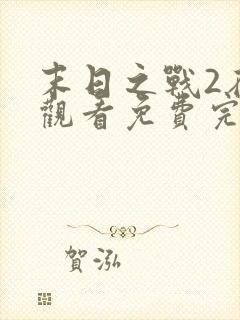 末日之戰2在
觀看免費完
賀泓